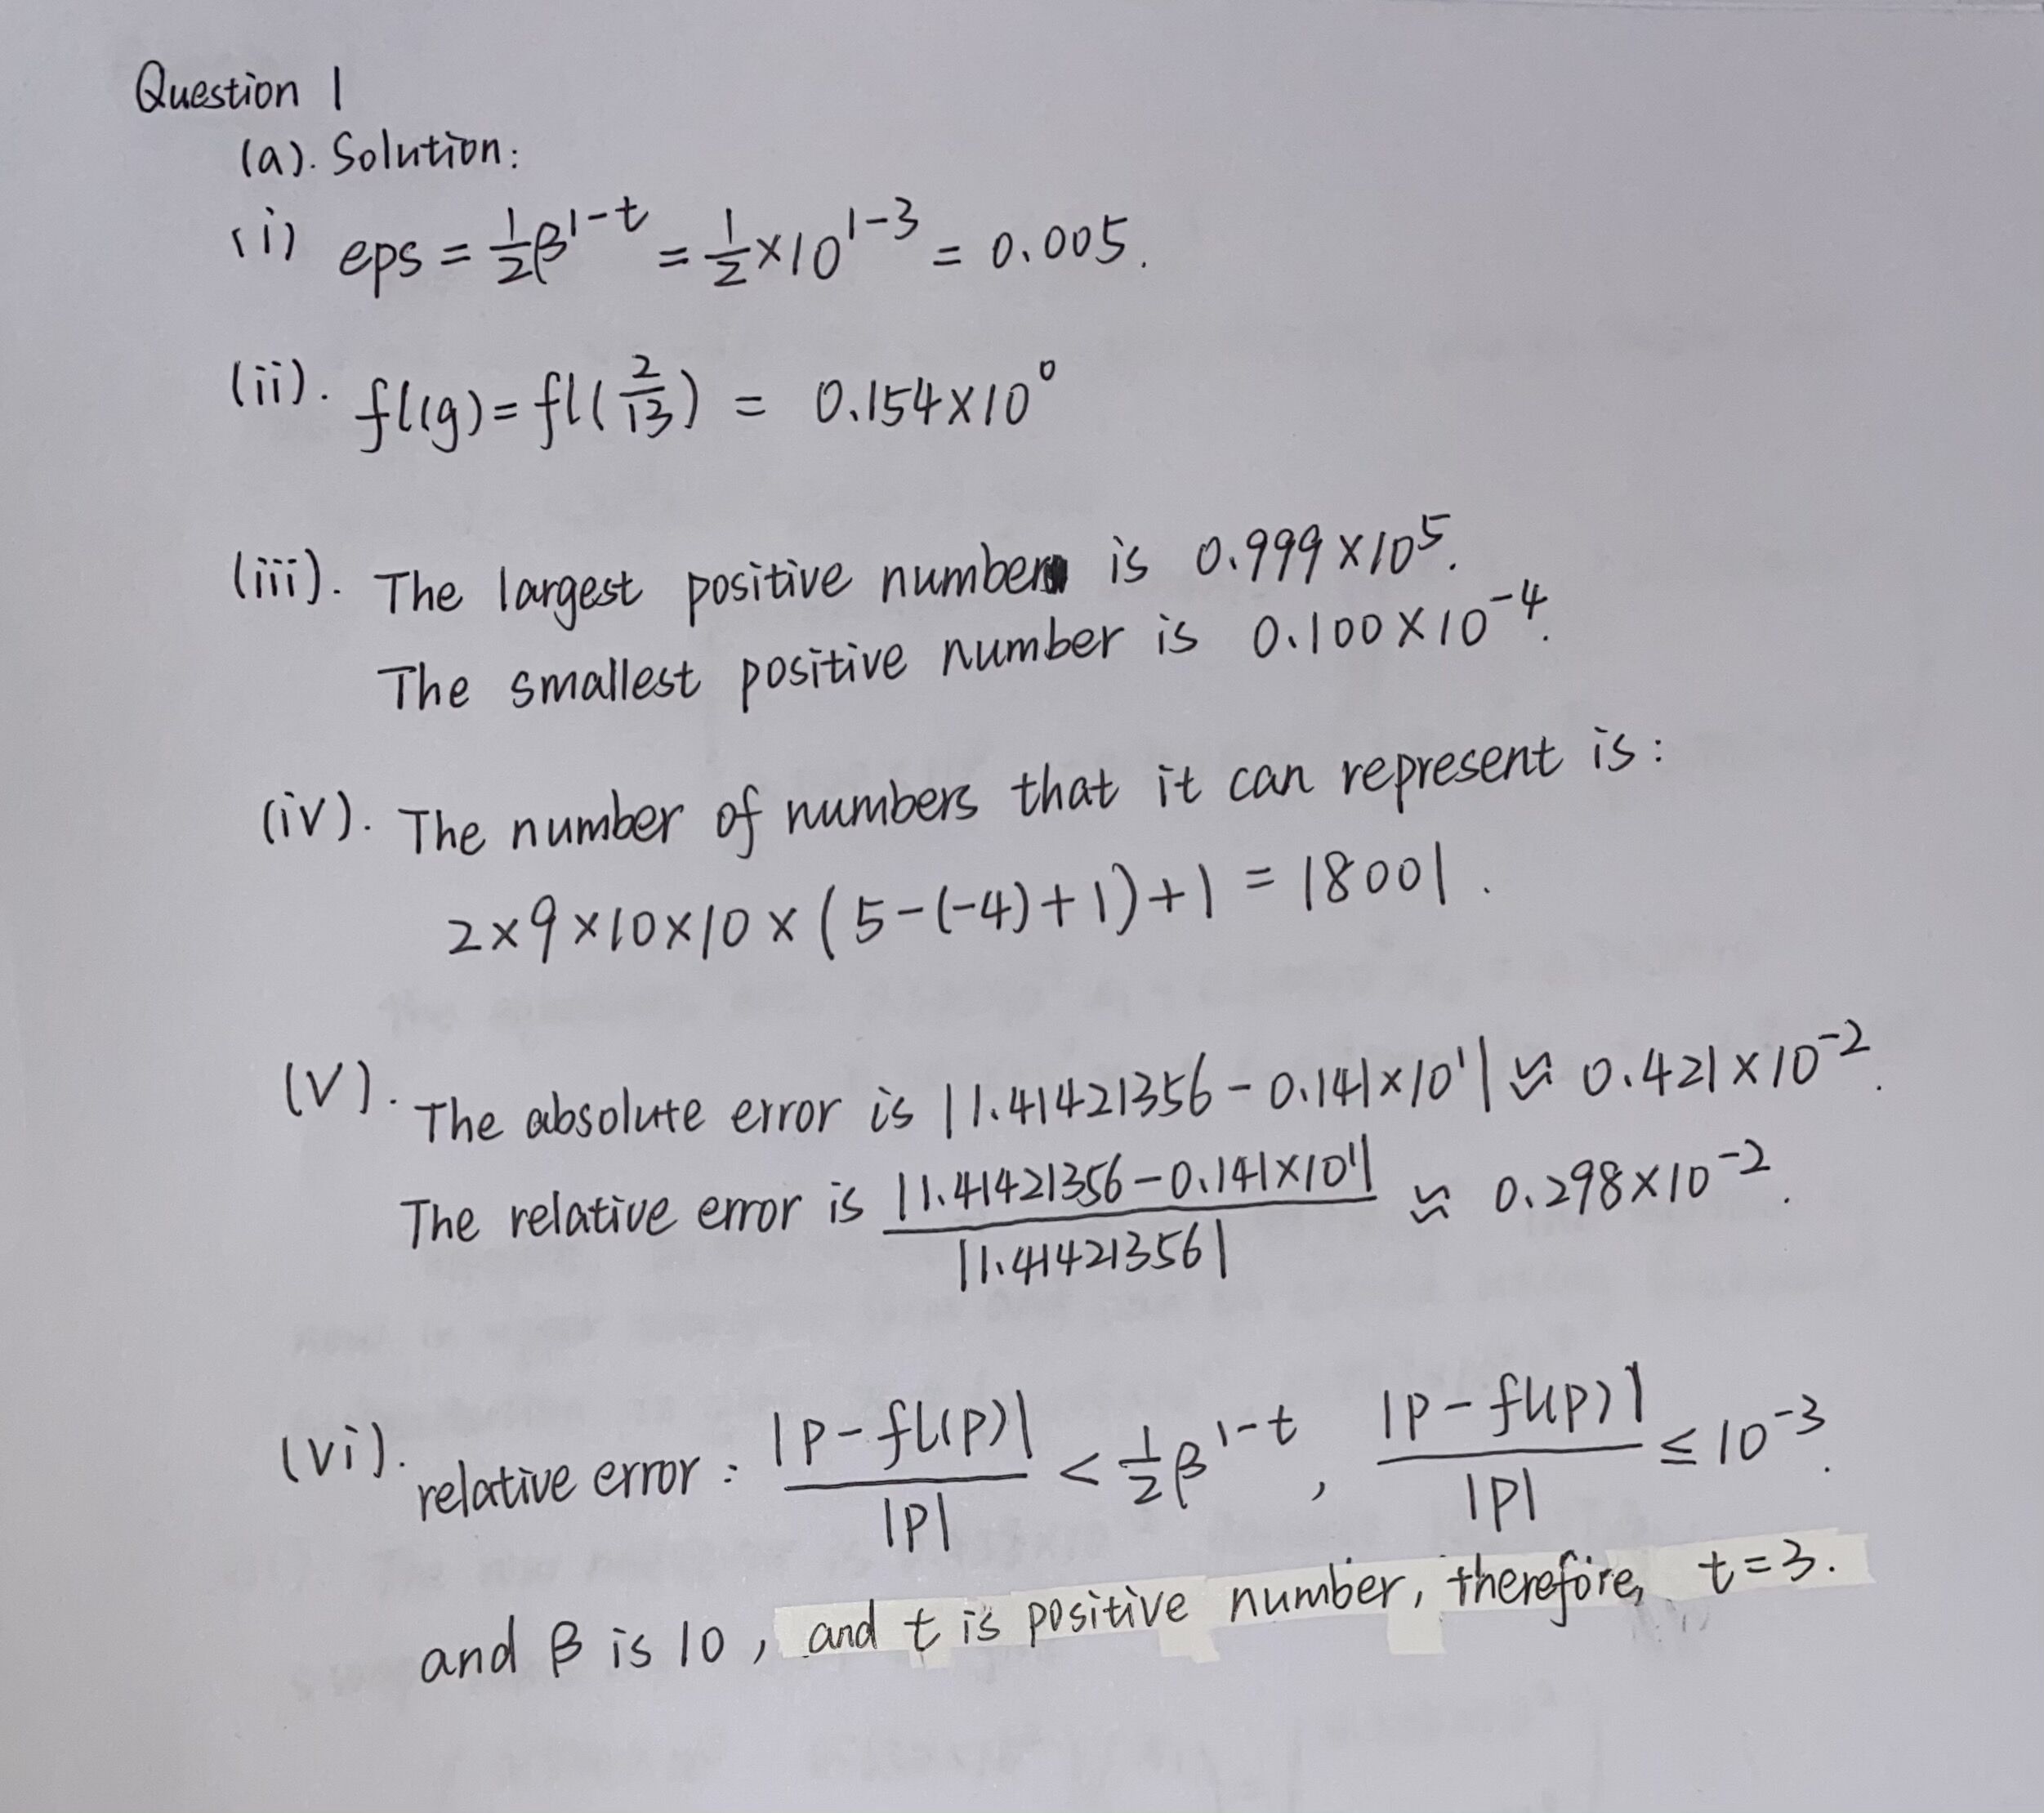 Question 1
(a). Solution:
(i) eps = ½β^(1-t) = ½×10^(1-3) = 0.005.
(ii). fl(g) = fl(2/13) = 0.154×10⁰
(iii). The largest positive number is 0.999×10⁵.
The smallest positive number is 0.100×10⁻⁴.
(iv). The number of numbers that it can represent is:
2×9×10×10×(5-(-4)+1)+1 = 18001.
(V). The absolute error is |1.41421356 - 0.141×10¹| ≈ 0.421×10⁻².
The relative error is |1.41421356 - 0.141×10¹| / |1.41421356| ≈ 0.298×10⁻².
(vi). relative error: |p - fl(p)| / |p| < ½β^(1-t), |p - fl(p)| / |p| ≤ 10⁻³.
and β is 10, and t is positive number, therefore, t=3.